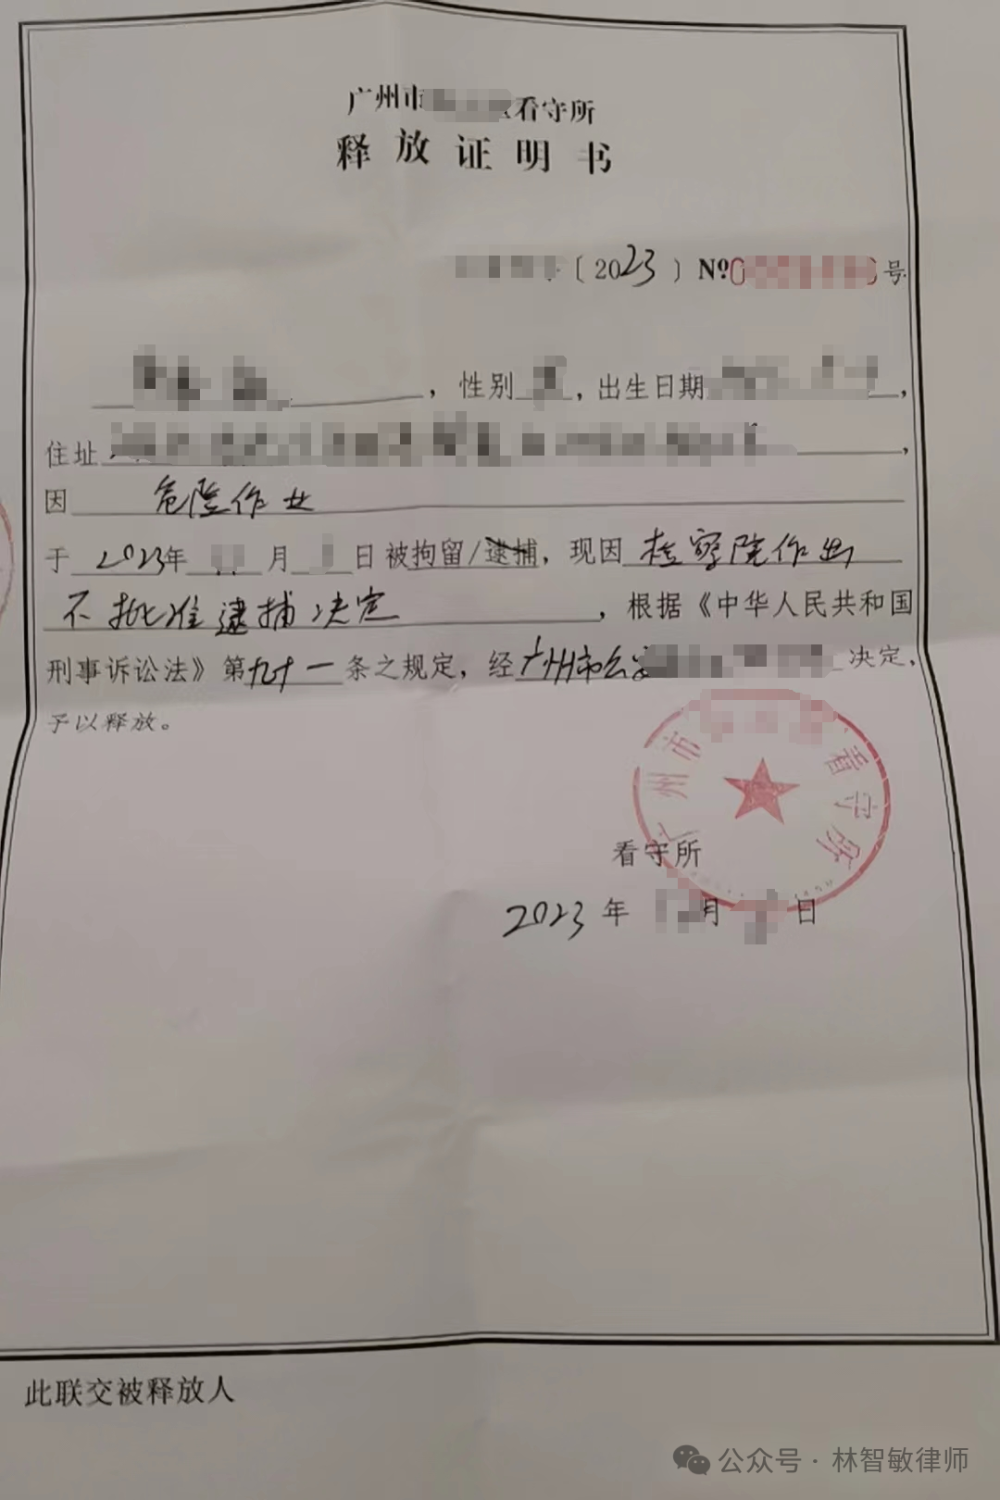 广州市 看守所
释放证明书
〔2023〕№ 号
，性别 ，出生日期 ，
住址 ，
因 危险作业
于 2023年 月 日被拘留/逮捕，现因 检察院作出
不批准逮捕决定 ，根据《中华人民共和国
刑事诉讼法》第九十一条之规定，经广州市公安 决定，
予以释放。
广州市 看守所
看守所
2023 年 月 日
此联交被释放人
公众号·林智敏律师